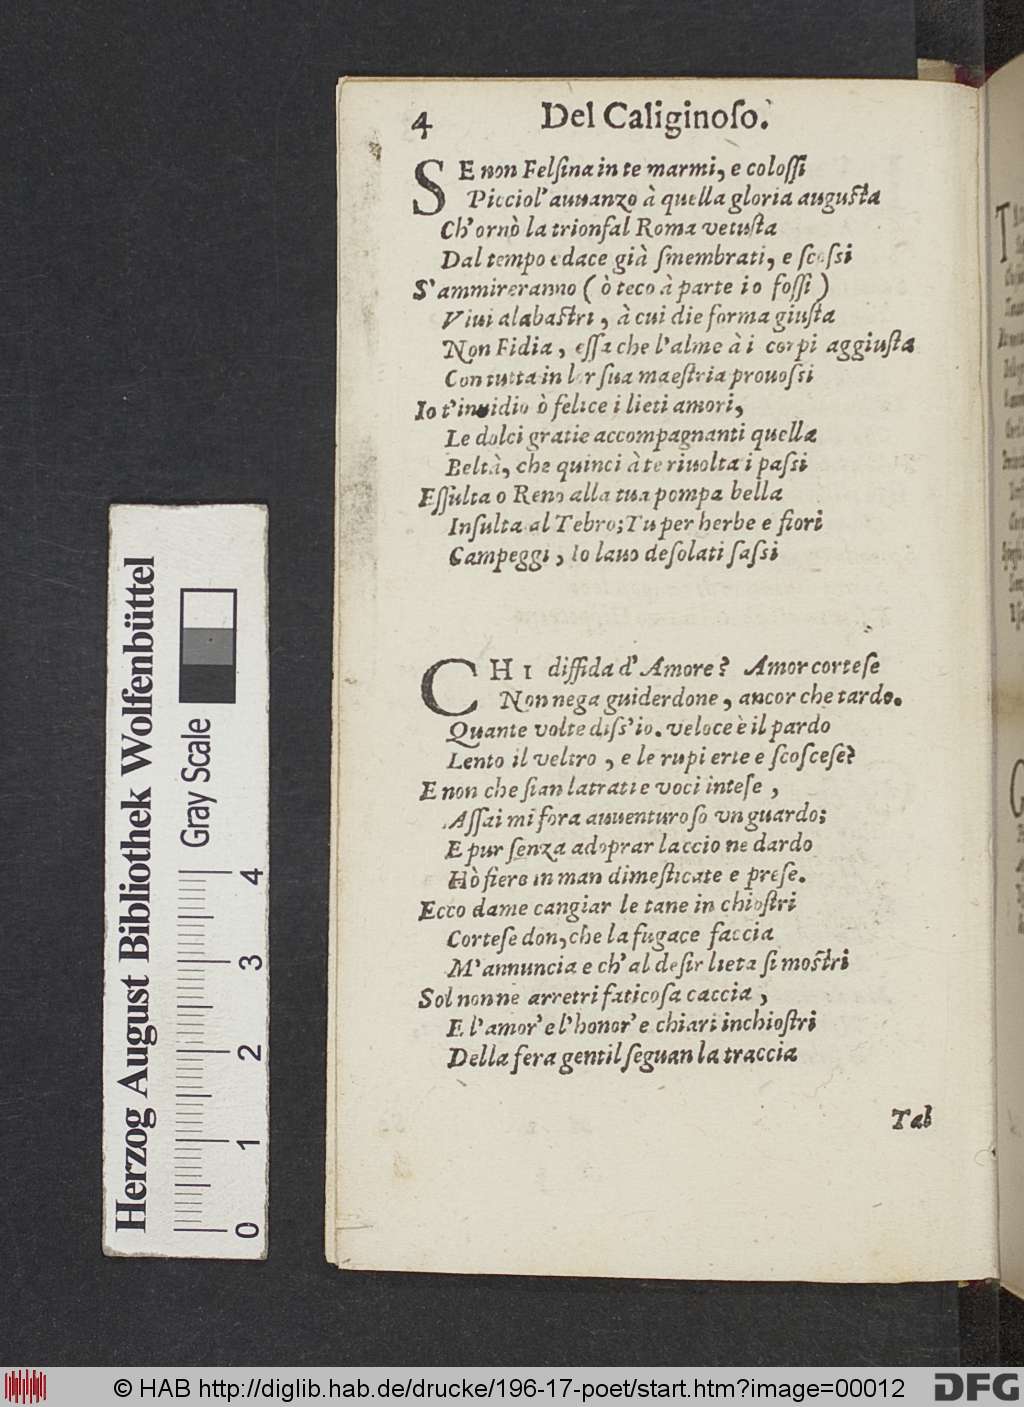 4 Del Caliginoſo.
SE non Felſina in te marmi, e coloſſi
Picciol' auuanzo à quella gloria auguſta
Ch' ornò la trionfal Roma vetuſta
Dal tempo edace già ſmembrati, e scoſsi
S' ammireranno ( ò teco à parte io foſſi )
Viui alabaſtri, à cui die forma giuſta
Non Fidia, eſſa che l'alme à i corpi aggiuſta
Con tutta in lor ſua maeſtria prouoſsi
Io t'inuidio ò felice i lieti amori,
Le dolci gratie accompagnanti quella
Beltà, che quinci à te riuolta i paſsi
Eſſulta o Reno alla tua pompa bella
Inſulta al Tebro; Tu per herbe e fiori
Campeggi, Io lauo deſolati ſaſsi
CHI diffida d' Amore? Amor corteſe
Non nega guiderdone, ancor che tardo.
Quante volte diſs'io. veloce è il pardo
Lento il veltro, e le rupi erte e ſcoſceſe?
E non che ſian latrati e voci inteſe,
Aſſai mi fora auuenturoſo vn guardo;
E pur ſenza adoprar laccio ne dardo
Hò fiere in man dimeſticate e preſe.
Ecco dame cangiar le tane in chioſtri
Corteſe don, che la fugace faccia
M' annuncia e ch' al deſir lieta ſi moſtri
Sol non ne arretri faticoſa caccia,
E l'amor' e l'honor' e chiari inchioſtri
Della fera gentil ſeguan la traccia
Tal
Herzog August Bibliothek Wolfenbüttel
Gray Scale
0 1 2 3 4
© HAB http://diglib.hab.de/drucke/196-17-poet/start.htm?image=00012
DFG